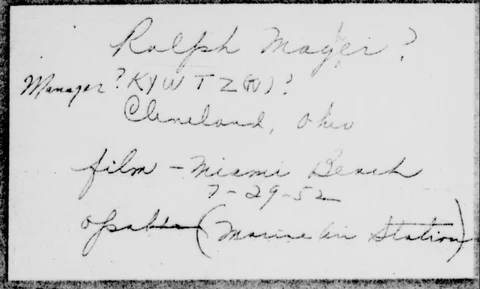 Ralph Mayer?
Manager? KYW TZ(R)?
Cleveland, Ohio
film - Miami Beach
7-29-52
(Marine Air Station)